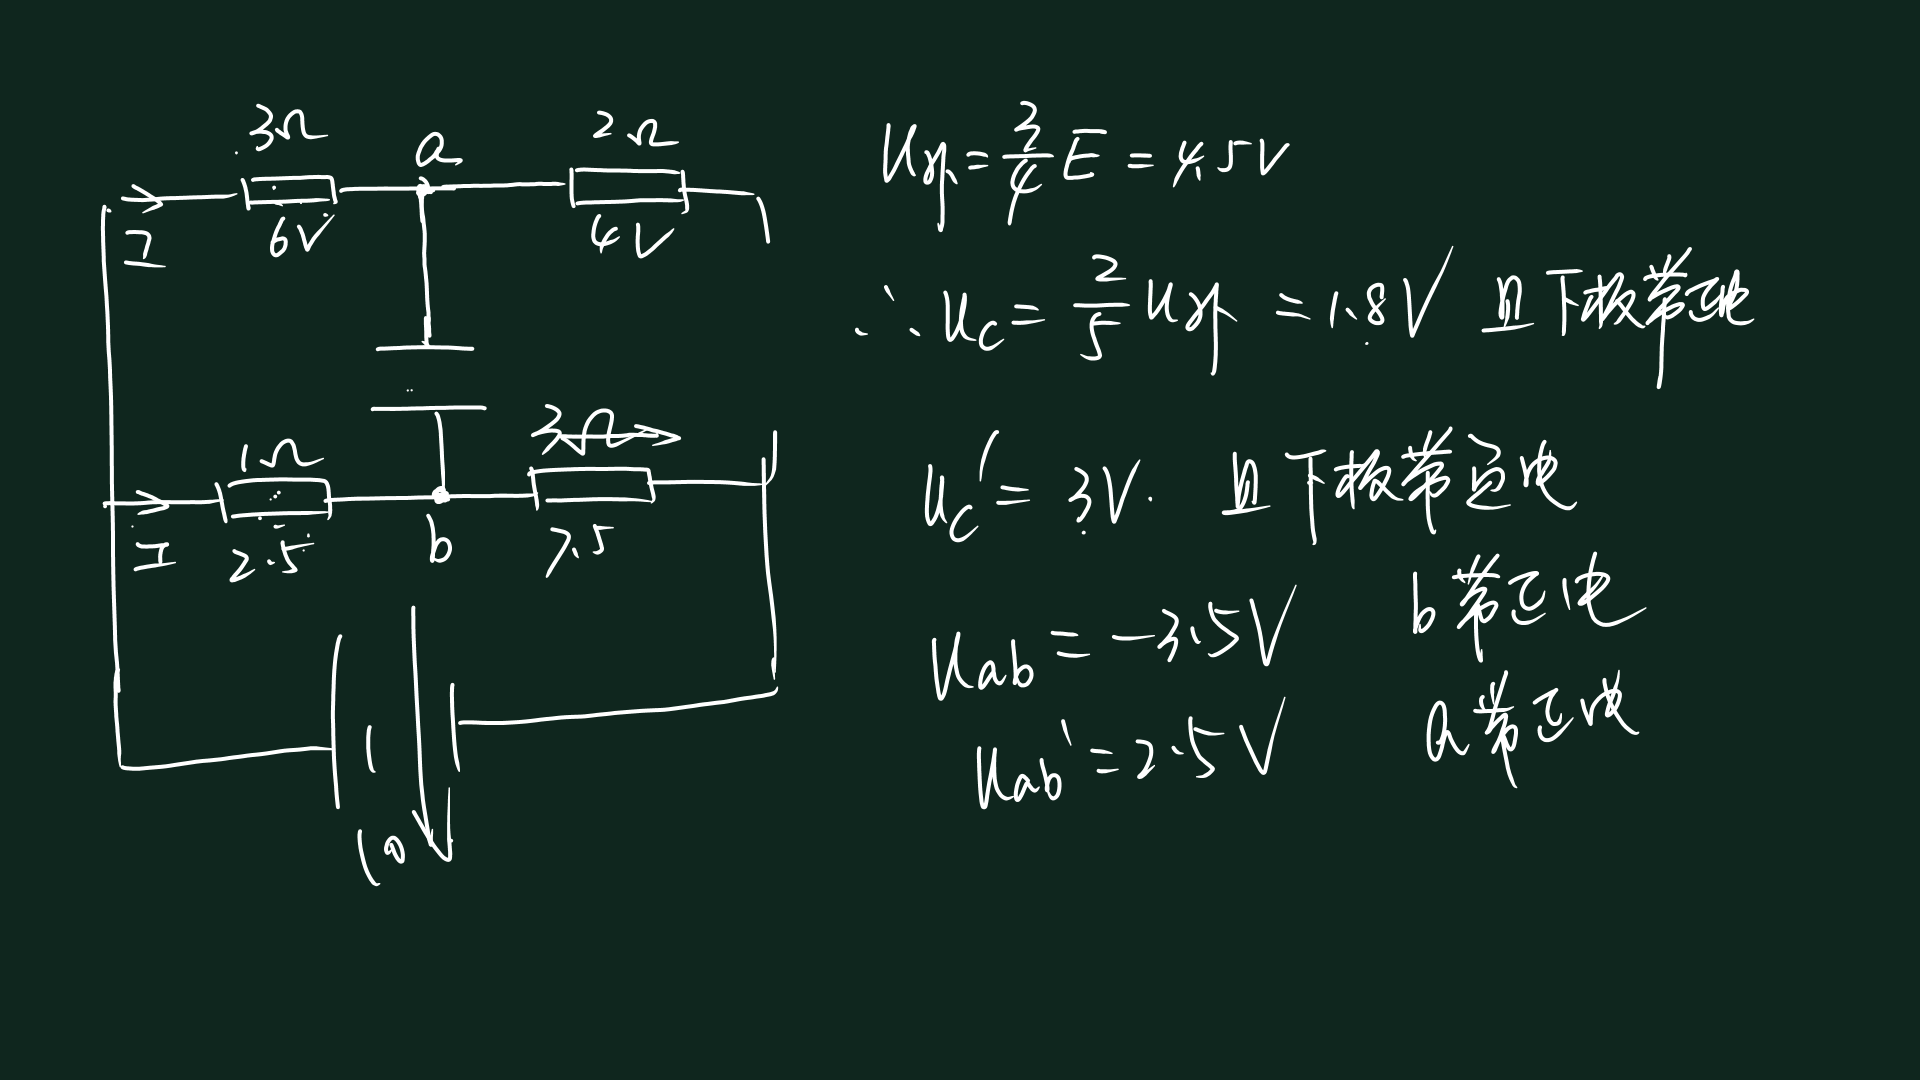 3Ω
a
2Ω
I
6V
4V
1Ω
3Ω
I
2.5
b
7.5
10V
U外=3/4E=4.5V
∴Uc=2/5U外=1.8V 且下板带正电
Uc'=3V. 且下板带负电
Uab=-3.5V b带正电
Uab'=2.5V a带正电